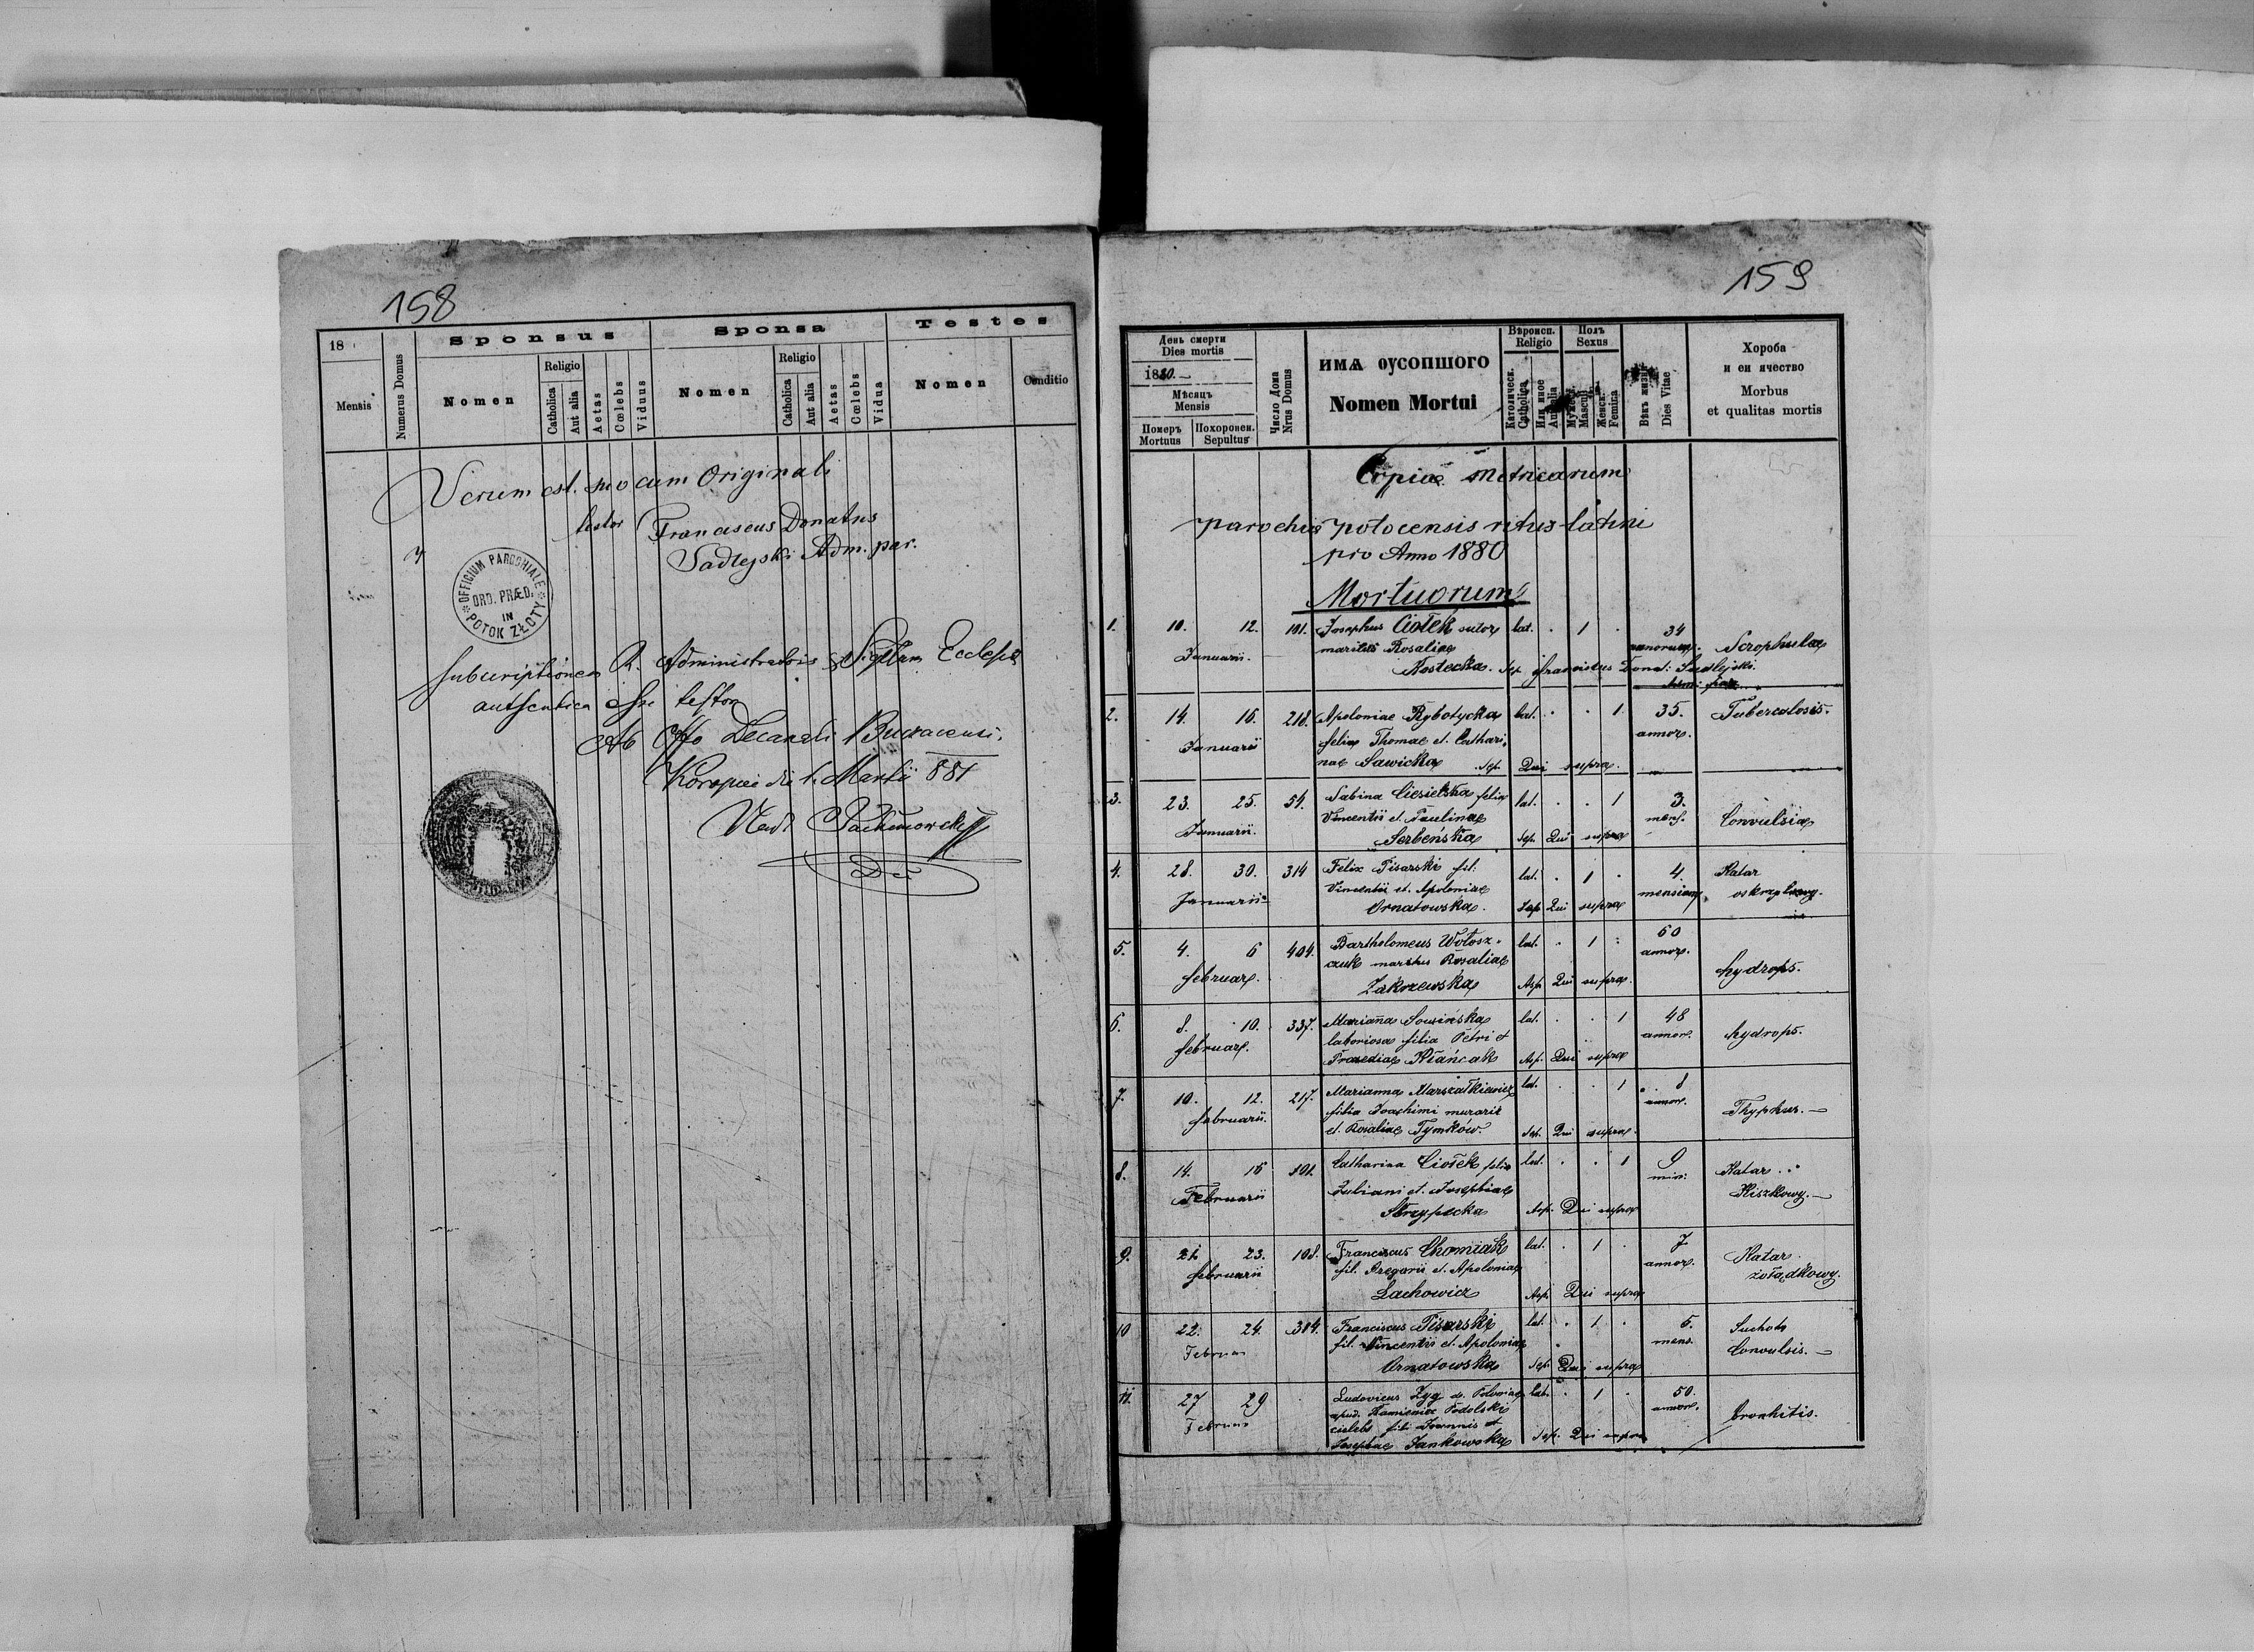 158
18
Mensis
Numerus Domus
Sponsus
Nomen
Religio
Catholica
Aut alia
Aetas
Cœlebs
Viduus
Sponsa
Nomen
Religio
Catholica
Aut alia
Aetas
Cœlebs
Vidua
Testes
Nomen
Conditio
Verum est. cum Originali
testor Franciscus Donatus
Sadlejski Adm. par.
OFFICIUM PAROCHIALE
ORD. PRÆD.
IN
POTOK ZŁOTY
Subscriptionem R. Administratoris & Sigillum Ecclesiæ
authentica esse testor
Ab Offo Decanali Buczacensi.
Koropiec die 1. Martii 881
159
День смерти
Dies mortis
1880.
Мѣсяцъ
Mensis
Померъ
Mortuus
Похоронен.
Sepultus
Число Дома
Nrus Domus
ИМА ОУСОПШОГО
Nomen Mortui
Вѣроисп.
Religio
Католическ.
Catholica
Или иное
Aut alia
Полъ
Sexus
Мужеск.
Mascul.
Женск.
Femina
Вѣкъ жизни
Dies Vitae
Хороба
и еи ячество
Morbus
et qualitas mortis
Copia Metricarum
parochiæ potocensis ritus latini
pro Anno 1880
Mortuorum
1. 10. 12. 101. Josephus Ciołek sutor lat. . 1 . 34
Januarii. maritus Rosaliae annorum. Scrophulae
Kostecka. Sep. Franciscus Donat: Sadlejski
Adm. par.
2. 14. 16. 218. Apoloniae Rybotycka lat. . . 1 35. Tuberculosis.
Januarii filia Thomae et. Cathari annor.
nae Sawicka Sep. Qui supra.
3. 23. 25. 54. Sabina Ciesielska filia lat. . . 1 3.
Januarii. Vincentii et. Paulinae mens. Convulsiae
Serbeńska Sep. Qui supra
4. 28. 30. 314 Felix Pisarski fil. lat. . 1 . 4. Katar
Januarii Vincentii et. Apoloniae mensium oskrzelowy.
Ornatowska. Sep. Qui supra
5. 4. 6 404. Bartholomeus Wołosz lat. . 1 . 60
februar. czuk maritus Rosaliae annor. hydrops.
Zakrzewska Sep. Qui supra.
6. 8. 10. 337. Marianna Sousińska lat. . . 1 48
februar. laboriosa filia Petri et annor. hydrops.
Praxediae Kłańcak Sep. Qui supra
7. 10. 12. 217. Marianna Marszałkiewicz lat. . . 1 8
februarii. filia Joachimi murarii annor. Thyphus.
et. Rosaliae Tymków. Sep. Qui supra.
8. 14. 16 101. Catharina Ciołek filia lat. . . 1 9 Katar
Februarii Juliani et. Josephiae Kiszkowy.
Skrzypecka Sep. Qui supra
9. 21 23. 108. Franciscus Chomiak lat. . 1 . 7
februarii fil. Gregorii et. Apoloniae annor. Katar
Lachowicz Sep. Qui supra żołądkowy.
10 22. 24. 314. Franciscus Pisarski lat. . 1 . 5. Suchoty
Februar fil. Vincentii et. Apoloniae mens. Convulsis.
Ornatowska Sep. Qui supra
11. 27 29 Ludovicus Zyg de Polonia lat. . 1 . 50.
Februar apud. Kamieniec Podolski annor. bronhitis.
cælebs fil: Joannis et
Josephae Jankowska Sep. Qui supra